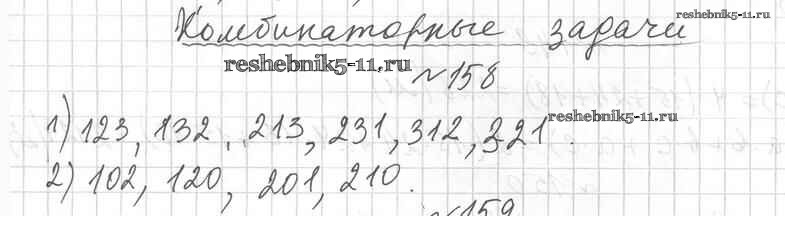 Комбинаторные задачи
reshebnik5-11.ru
reshebnik5-11.ru
№158
reshebnik5-11.ru
1) 123, 132, 213, 231, 312, 321.
2) 102, 120, 201, 210.
№159